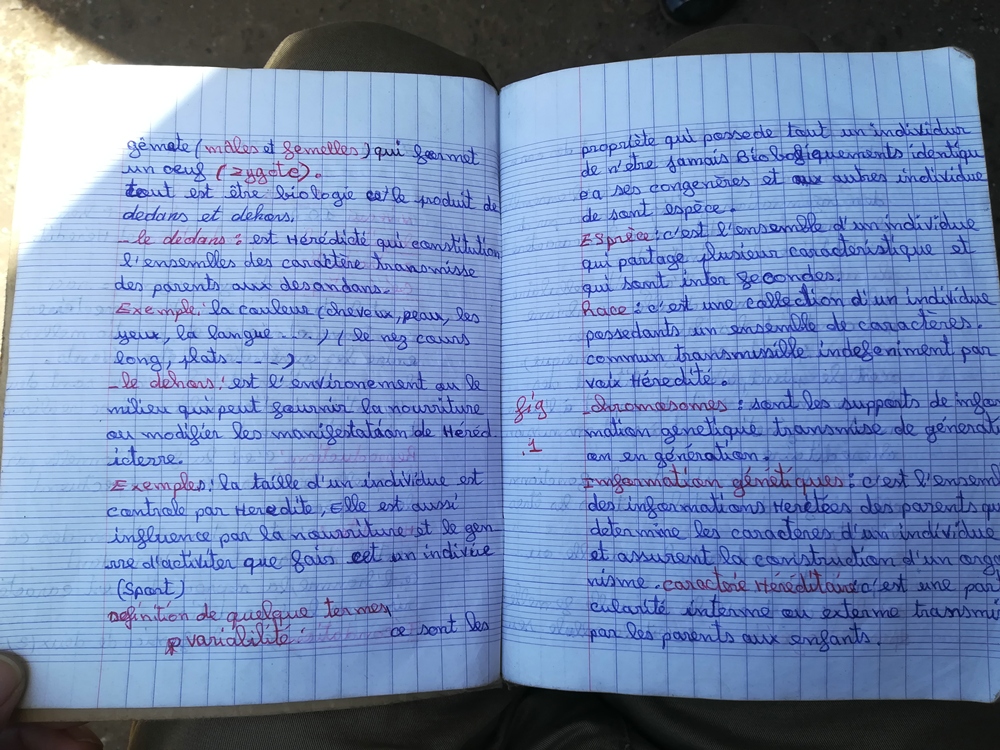 gémete (mâles et femelles) qui formet
un oeuf (zygote).
tout est être biologie est le produit de
dedans et dehors.
_ le dedans : est Hérédicté qui constitution
l'ensembles des caractère transmisse
des parents aux desandans.
Exemple: la couleur (cheveux, peau, les
yeux, la langue ...) ( le nez cours
long, plats - - -)
_ le dehors: est l'environement ou le
milieu qui peut fournir la nourriture
ou modifier les manifestataon de Héréd
icterre.
Exemples: la taille d'un individue est
controle par Heredite, Elle est aussi
influence par la nourriture et le gen
rre d'activiter que fais cet un indivue
(Sport)
Definition de quelque termes
variabilité: ce sont les
propriète qui possede tout un individur
de n'être jamais Biologiquements identiqu
e a ses congenères et aux autres individue
de sont espèce.
ESpèce: c'est l'ensemble d'un individue
qui partage plusieur caractéristique et
qui sont inter fecondes.
Race : c'est une collection d'un individue
possedants un ensemble de caractères.
commun transmissible indefeniment par
voix Héredité.
fig
.1
_chromosomes : sont les supports de infor
mation genetique transmise de générati
on en génération.
Information génétiques : c'est l'ensem
des informations Heretées des parents qu
determine les caractères d'un individue
et assurent la construction d'un orga
nisme. caracterie Héréditaire c'est une par
cularité interme ou externe transmi
par les parents aux enfants.